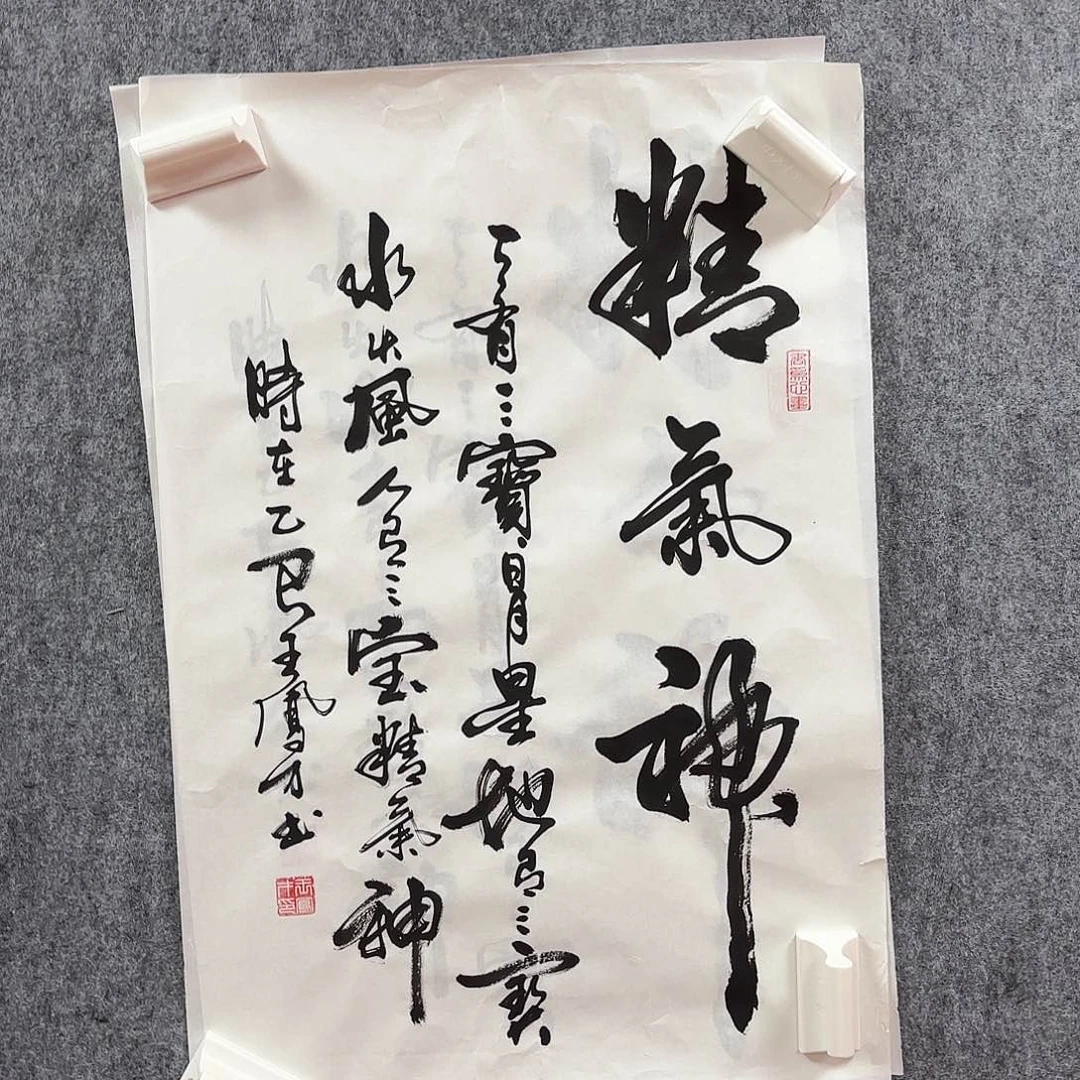 精氣神
天有三寶日月星地有三寶
水火風人有三宝精氣神
時在乙巳王鳳方书